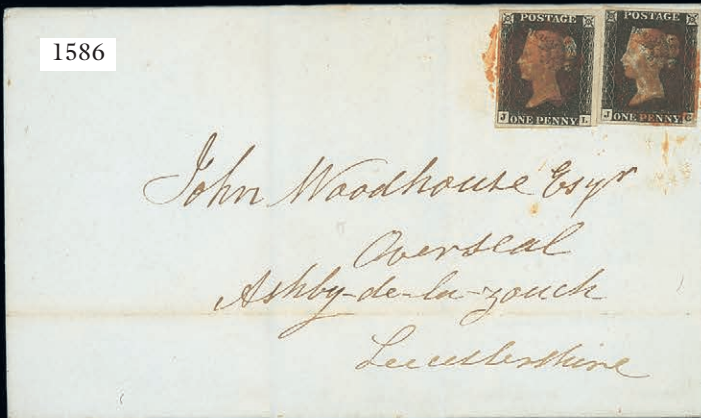 1586
POSTAGE
J L
ONE PENNY
POSTAGE
J C
ONE PENNY
John Woodhouse Esqr
Overseal
Ashby-de-la-zouch
Leicestershire